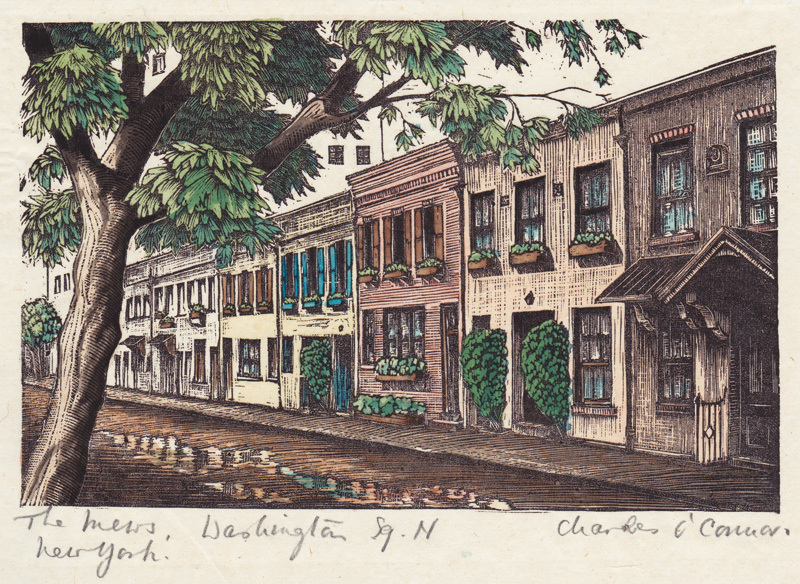 The Mews, Washington Sq. N Charles O'Connor.
New York.